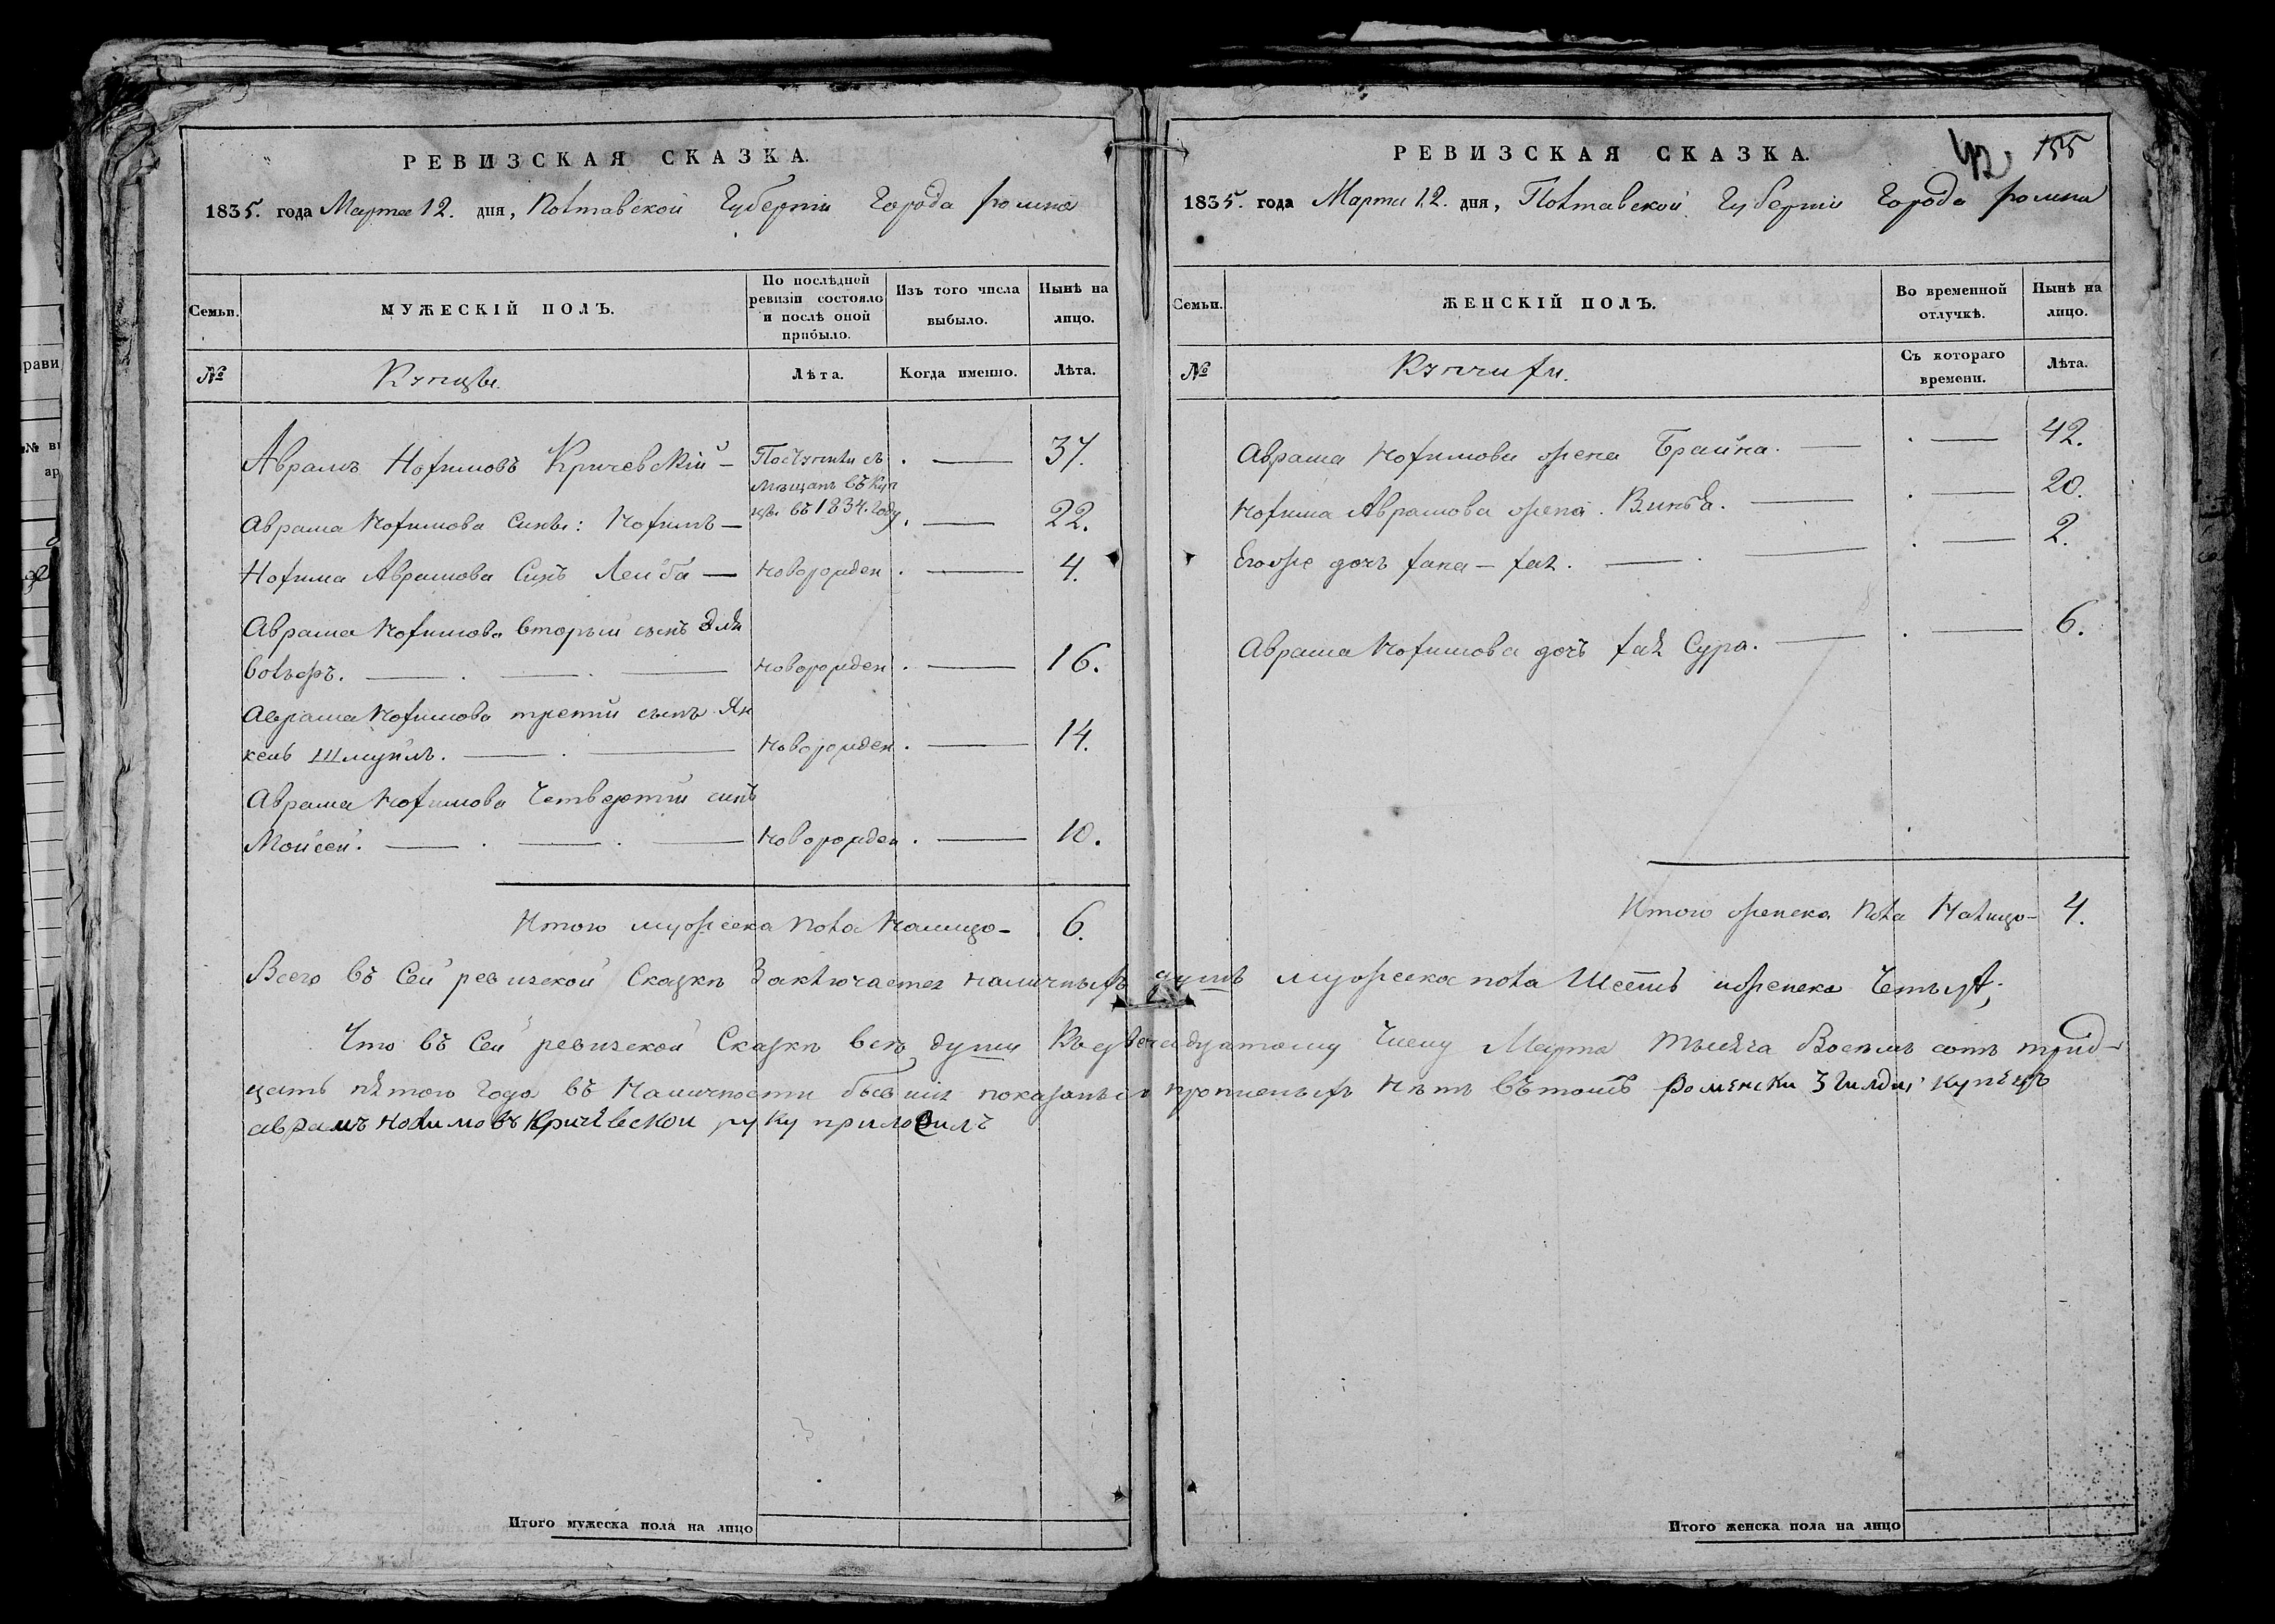 РЕВИЗСКАЯ СКАЗКА.
1835. года Марта 12. дня, Полтавской Губерніи Города Ромна
Семьи.
МУЖЕСКІЙ ПОЛЪ.
По послѣдней ревизіи состояло и послѣ оной прибыло.
Изъ того числа выбыло.
Нынѣ на лицо.
№
Купцы.
Лѣта.
Когда именно.
Лѣта.
Аврамъ Нохимовъ Кричевскій — Поступили съ . — 37.
мѣщанъ въ Куп
цы. въ 1834. году
Аврама Нохимова Сины: Нохимъ — . — 22.
Нохима Аврамова Синъ Лейба — новорожден . — 4.
Аврама Нохимова вторый сынъ Эля
вольфъ. — . — . — новорожден . — 16.
Аврама Нохимова третій сынъ Ян
кель Шмуйлъ. — . — новорожден . — 14.
Аврама Нохимова Четвертій синъ
Мойсей. — . — . — новорожден . — 10.
Итого мужеска пола Налицо — 6.
РЕВИЗСКАЯ СКАЗКА.
42. 155
1835. года Марта 12. дня, Полтавской Губерніи Города Ромна
Семьи.
ЖЕНСКІЙ ПОЛЪ.
Во временной отлучкѣ.
Нынѣ на лицо.
№
Купчихи.
Съ котораго времени.
Лѣта.
Аврама Нохимова жена Брайна. — . — 42.
Нохима Аврамова жена. — . — 20.
Егоже дочъ хана — хая. — . — . — 2.
Аврама Нохимова дочъ хая Сура. — . — 6.
Итого женска пола Налицо — 4.
Всего въ Сей ревизской Сказкѣ Заключается наличныхъ душъ мужеска пола Шесть иженска Четыре;
Что въ Сей ревизской Сказкѣ всѣ души Къ двенадцатому Числу Марта тысяча Восемь сотъ трид-
цать пятого Года въ Наличности бывшія показаны и прописныхъ Нѣтъ въ томъ Роменски 3 гилдіи купецъ
аврамъ нохимовъ Кричевской руку приложилъ
Итого мужеска пола на лицо
Итого женска пола на лицо